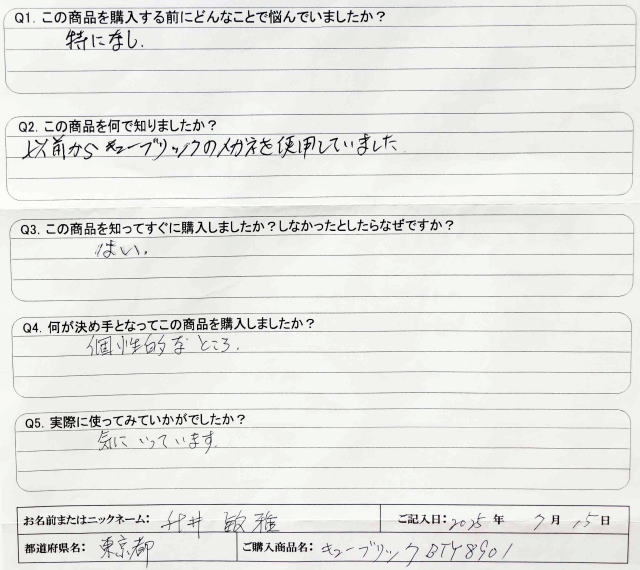 Q1. この商品を購入する前にどんなことで悩んでいましたか？
特になし.
Q2. この商品を何で知りましたか？
以前からキューブリックのメガネを使用していました
Q3. この商品を知ってすぐに購入しましたか？しなかったとしたらなぜですか？
はい.
Q4. 何が決め手となってこの商品を購入しましたか？
個性的なところ.
Q5. 実際に使ってみていかがでしたか？
気にいっています.
お名前またはニックネーム: 井 敏雅 ご記入日: 2025 年 7 月 15 日
都道府県名: 東京都 ご購入商品名: キューブリック BTY8901